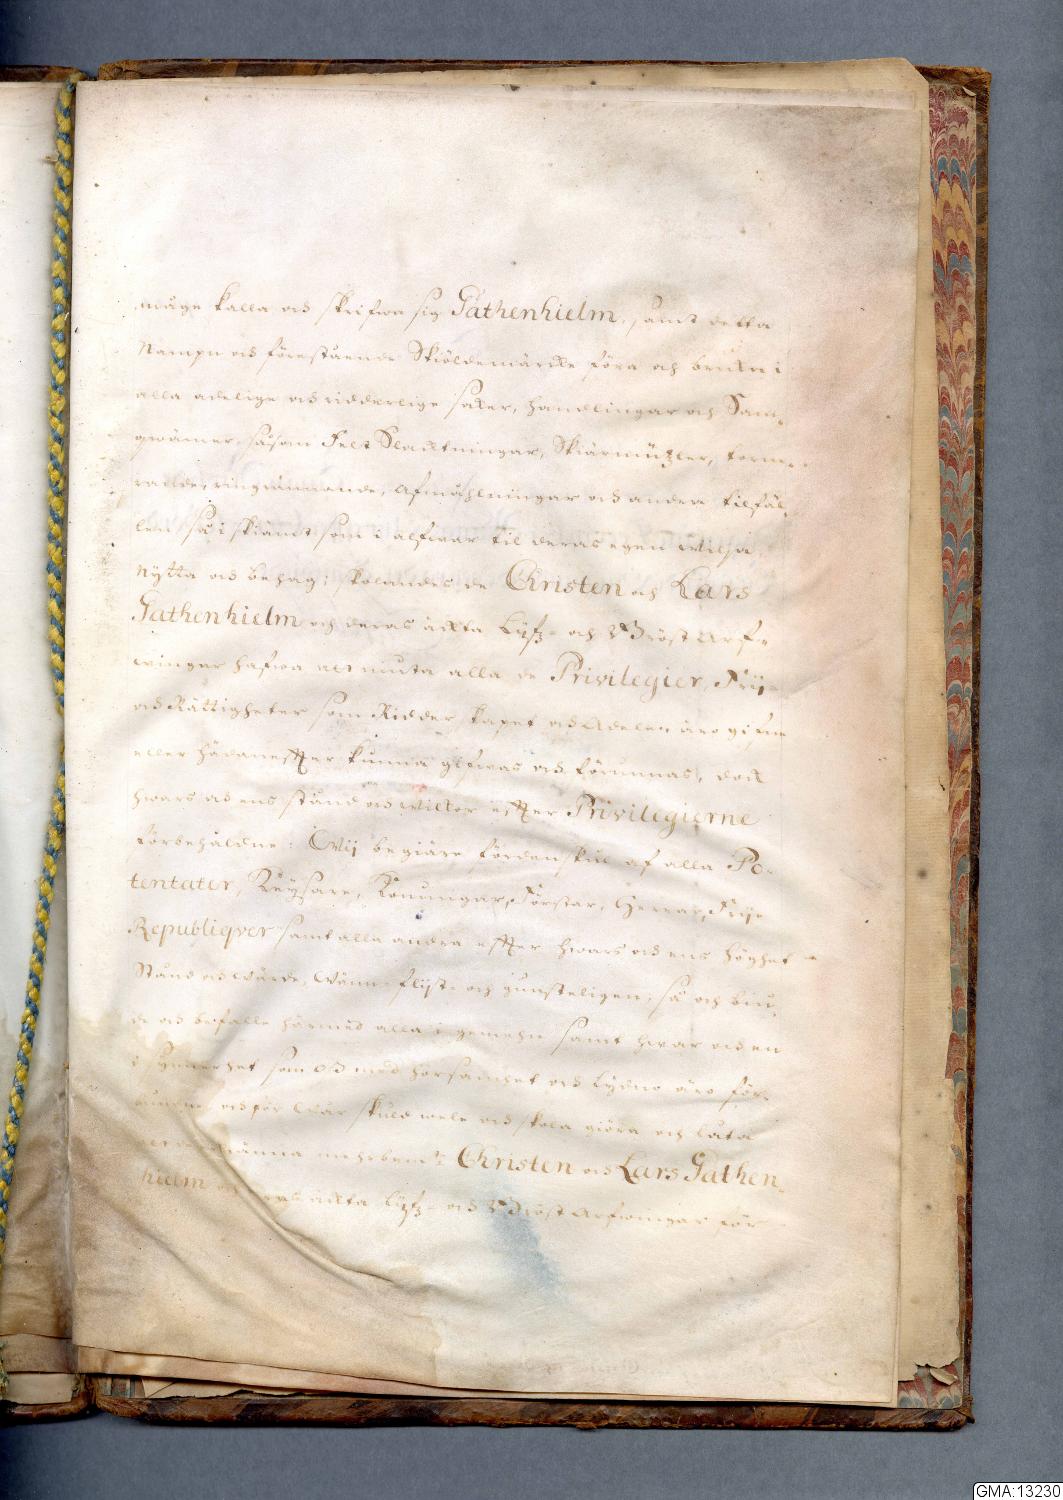 måge kalla och skrifwa sig Gathenhielm, samt detta
Nampn och förestående Skiöldemärcke föra och bruka i
alla adelige och ridderlige saker, handlingar och Sam-
qwämer, såsom Felt Slacktningar, Skiärmützler,
ringrännande, afmåhlningar och andra tilfäl-
len så i skiämt som i alfwar til deras egen wilja,
nytta och behag; skolandes de Christen och Lars
Gathenhielm och deras ächta Lijfz- och Bröst Arf-
wingar hafwa att niuta alla de Privilegier, Frij-
och Rättigheter som Ridderskapet och Adelen äro gifne
eller hädaneffter kunna gifwas och förunnas, dock
hwars och ens stånd och wilkor effter Privilegierne
förbehåldne: Wij begiäre fördenskul af alla Po-
tentater, Keysare, Konungar, Förstar, Herrar, Frije
Republiqver samt alla andra effter hwars och ens höghet
Stånd och wärde, Wänn- flijt- och gunsteligen, så och biu-
de och befalle härmed alla i gemehn samt hwar och en
i Synnerhet som oß med hörsamhet och Lydno äro för-
och för Wår skuld wele och skola giöra och låta
Christen och Lars Gathen-
hielm och deras ächta Lijfz- och Bröst Arfwingar för
GMA:13230